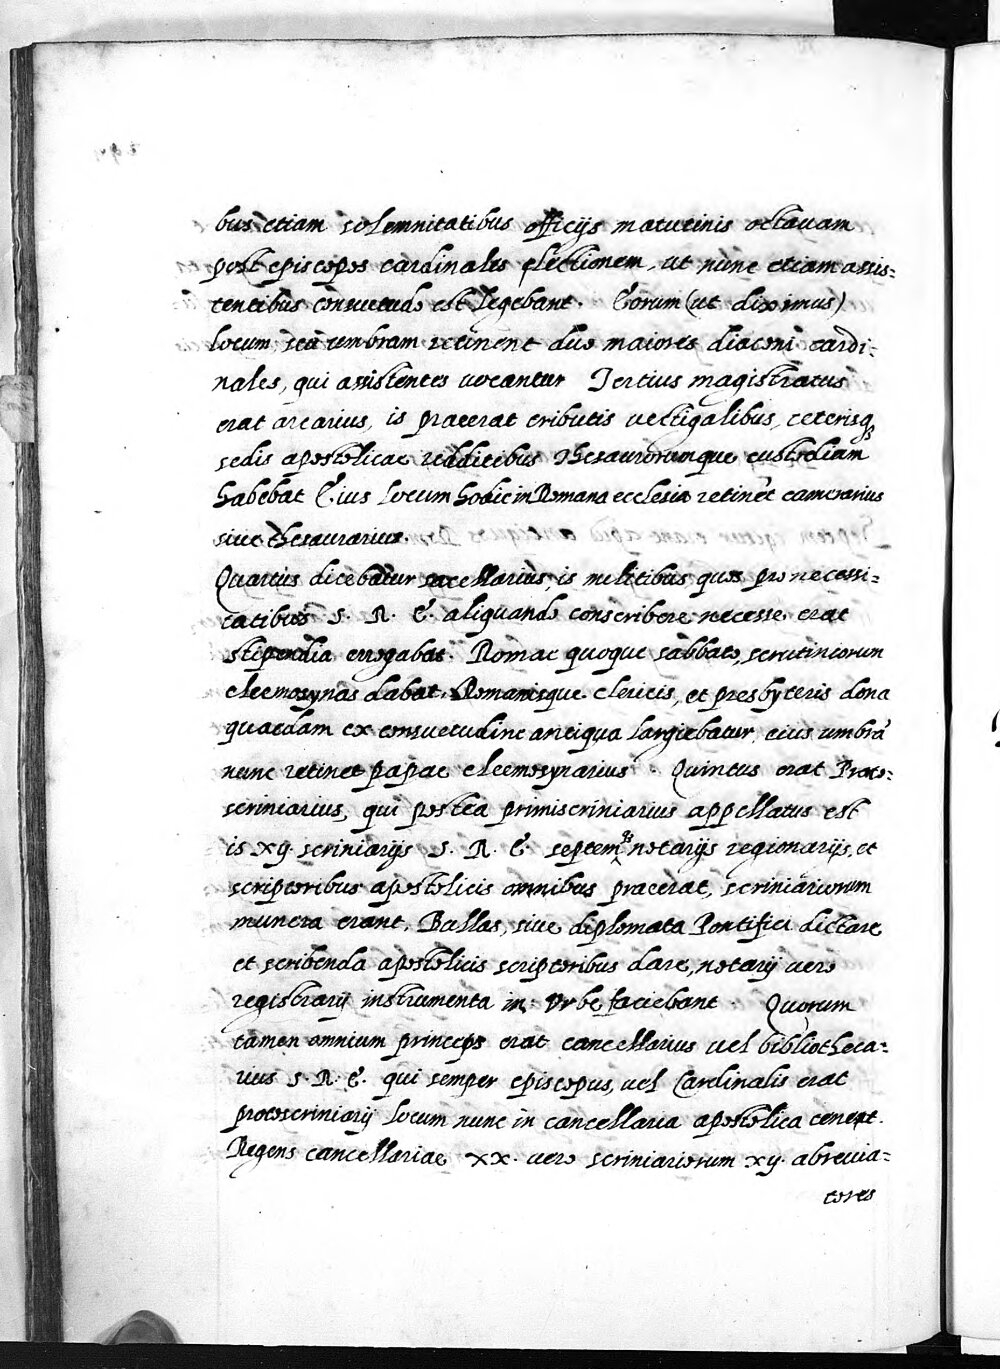 bus etiam solemnitatibus officijs matutinis octauam
post episcopos cardinales lectionem, ut nunc etiam assis=
tentibus consuetudo est legebant. Eorum (ut diximus)
locum, seu umbram retinent duo maiores diaconi cardi=
nales, qui assistentes uocantur Tertius magistratus
erat arcarius, is praeerat tributis uectigalibus, ceterisq3
sedis apostolicae redditibus thesaurorumque custodiam
habebat Eius locum hodie in Romana ecclesia retinet camerarius
siue thesaurarius.
Quartus dicebatur sacellarius, is militibus quos pro necessi=
tatibus S. R. E. aliquando conscribere necesse erat
stipendia errogabat. Romae quoque sabbato, scrutiniorum
eleemosynas dabat, Romanisque clericis, et presbyteris dona
quaedam ex consuetudine antiqua largiebatur, eius umbrã
nunc retinet papae eleemosynarius. Quintus erat Proto=
scriniarius, qui postea primiscriniarius appellatus est
is xij. scriniarijs S. R. E. septem q3 notarijs regionarijs, et
scriptoribus apostolicis omnibus praeerat, scriniariorum
munera erant, Bullas, siue diplomata Pontifici dictare
et scribenda apostolicis scriptoribus dare, notarij uero
registrarij instrumenta in Vrbe faciebant. Quorum
tamen omnium princeps erat cancellarius uel bibliotheca=
rius S. R. E. qui semper episcopus, uel Cardinalis erat
protoscriniarij locum nunc in cancellaria apostolica tenet.
Regens cancellariae xx. uero scriniariorum xij. abreuia=
tores